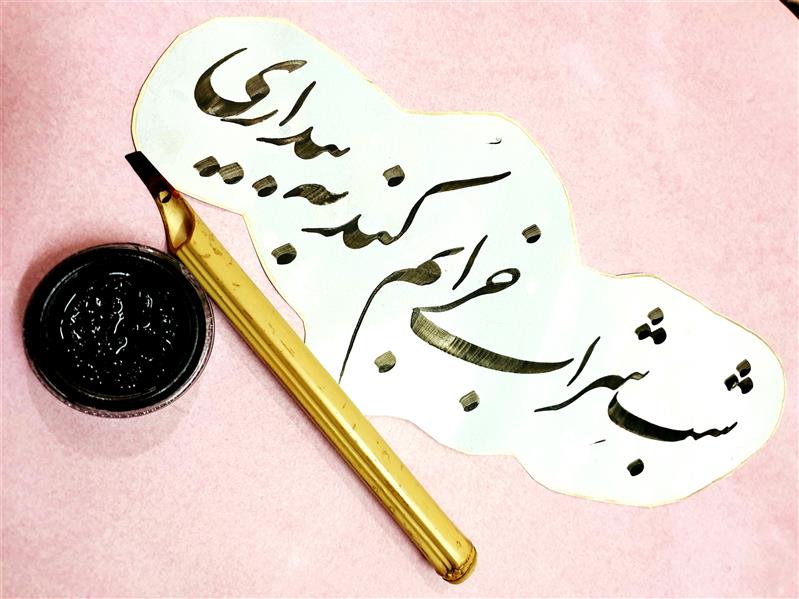 شب شراب خرابم کند به بیداری